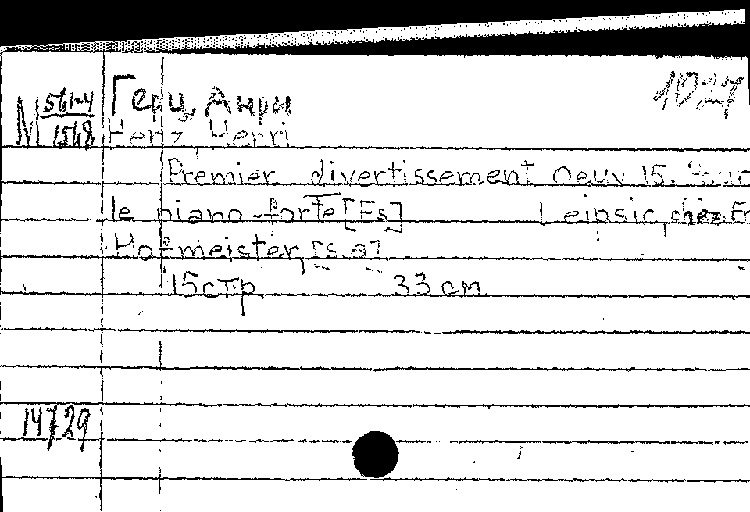 1027
M 561-4/1568 Герц, Анри
Herz, Henri
Premier divertissement Oeuv 15. Pour
le piano-forte [Es] Leipsic, chez Fr
Hofmeister, [s.a]
15 стр 33 cm
14729